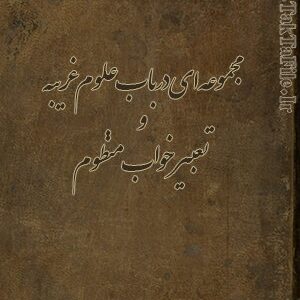 مجموعه ای در باب علوم غریبه
و
تعبیر خواب منظوم
TakTaFile.Ir